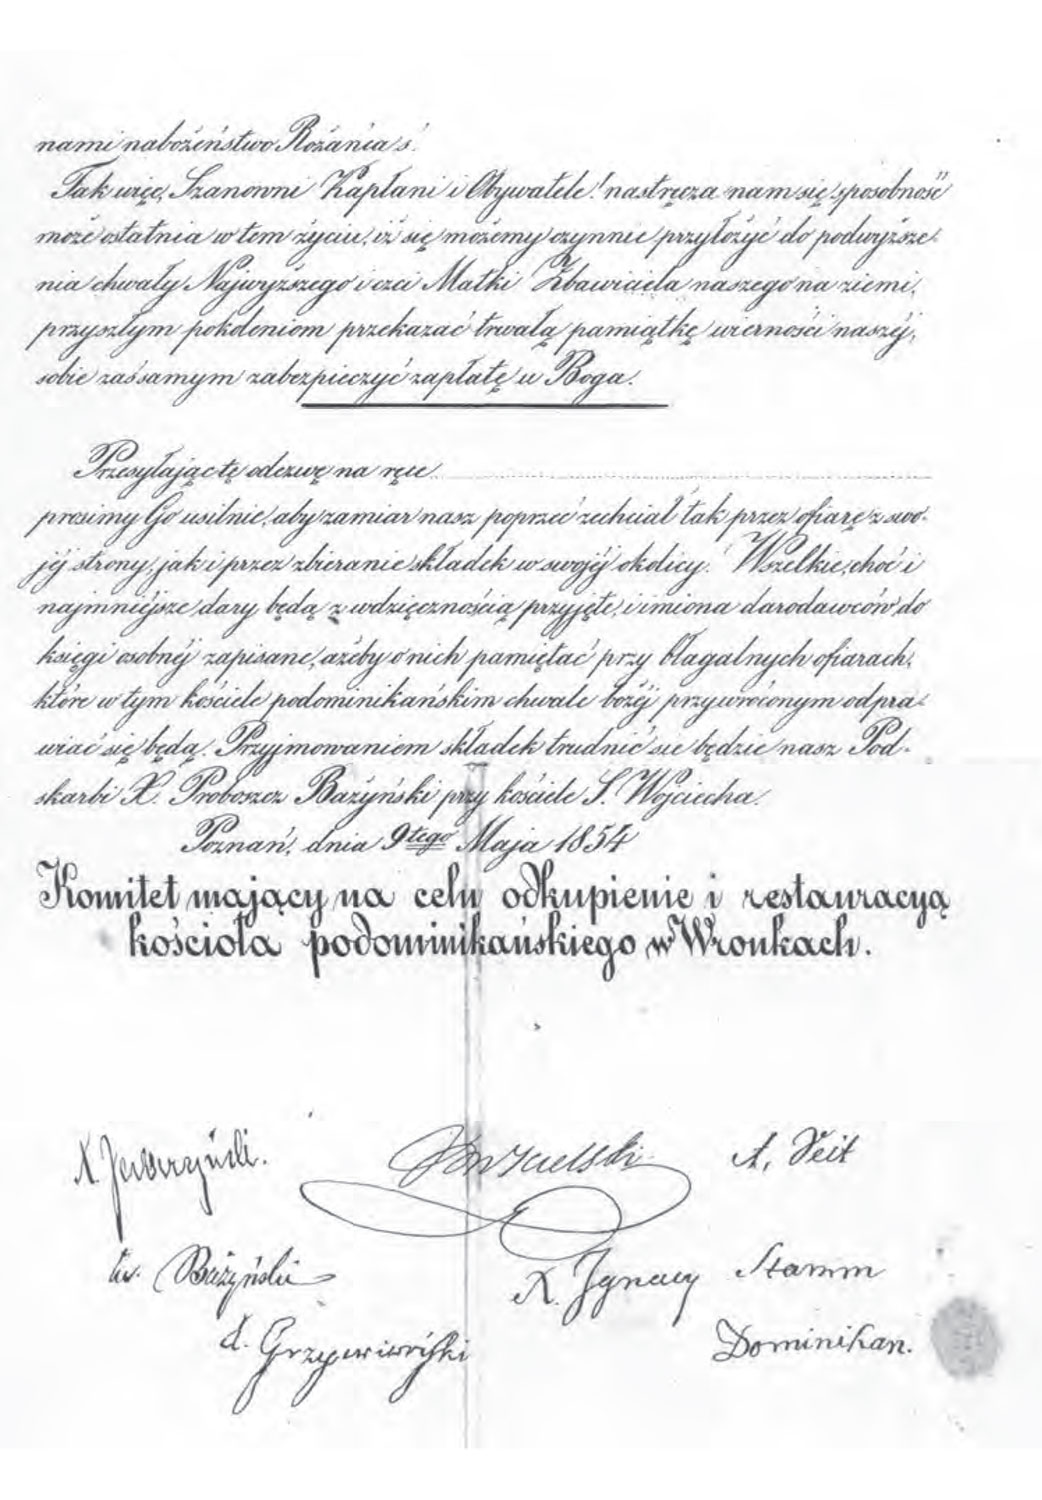 nami nabożeństwo Różańca ś.
Tak więc, Szanowni Kapłani i Obywatele! nastręcza nam się sposobność
może ostatnia w tem życiu, iż się możemy czynnie przyłożyć do podwyższe-
nia chwały Najwyższego i czci Matki Zbawiciela naszego na ziemi,
przyszłym pokoleniom przekazać trwałą pamiątkę wierności naszéj,
sobie zaś samym zabezpieczyć zapłatę u Boga.
Przesyłając tę odezwę na ręce
prosimy Go usilnie, aby zamiar nasz poprzeć zechciał tak przez ofiarę z swo-
jéj strony, jak i przez zbieranie składek w swojéj okolicy. Wszelkie, choć i
najmniejsze dary, będą z wdzięcznością przyjęte, i imiona darodawców do
księgi osobnéj zapisane, ażeby o nich pamiętać przy błagalnych ofiarach,
które w tym kościele podominikańskim chwale bożéj przywróconym odpra-
wiać się będą. Przyjmowaniem składek trudnić sie będzie nasz Pod-
skarbi X. Proboszcz Bażyński przy kościele S. Wojciecha.
Poznań, dnia 9tego Maja 1854
Komitet mający na celu odkupienie i restauracyą
kościoła podominikańskiego w Wronkach.
X. A. Veit
Bażyński X. Ignacy Stamm
Dominikan.